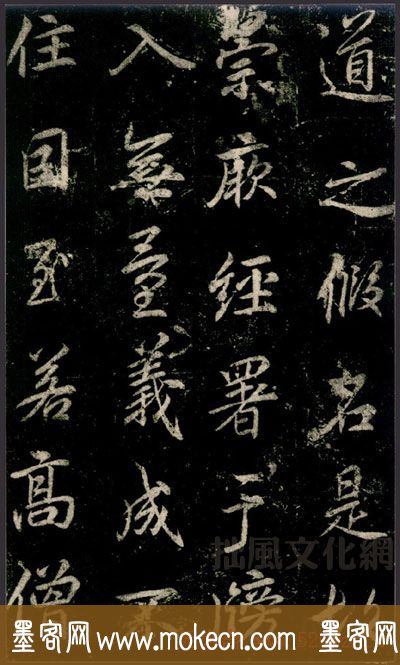 道之假名是
崇厥經署于牓
入無量義成不
住因至若高僧
拙風文化網
墨客网 www.mokecn.com 墨客网